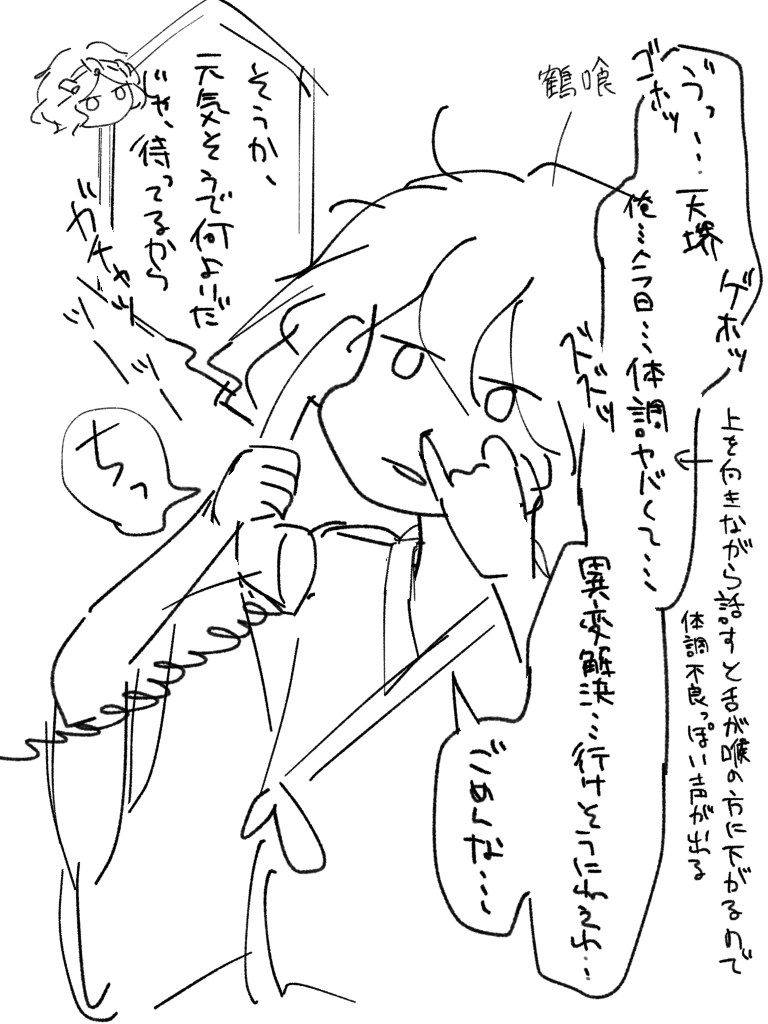 ゴホッ
ゔっ…天堺
俺…今日…体調ヤバくて…
ゲホッ
ズズッ
異変解決…行けそうにねえわ…
ごめんな…
上を向きながら話すと舌が喉の方に下がるので
体調不良っぽい声が出る
鶴喰
そうか、
元気そうで何よりだ
じゃ、待ってるから
ガチャッ
ツー
ツー
チッ